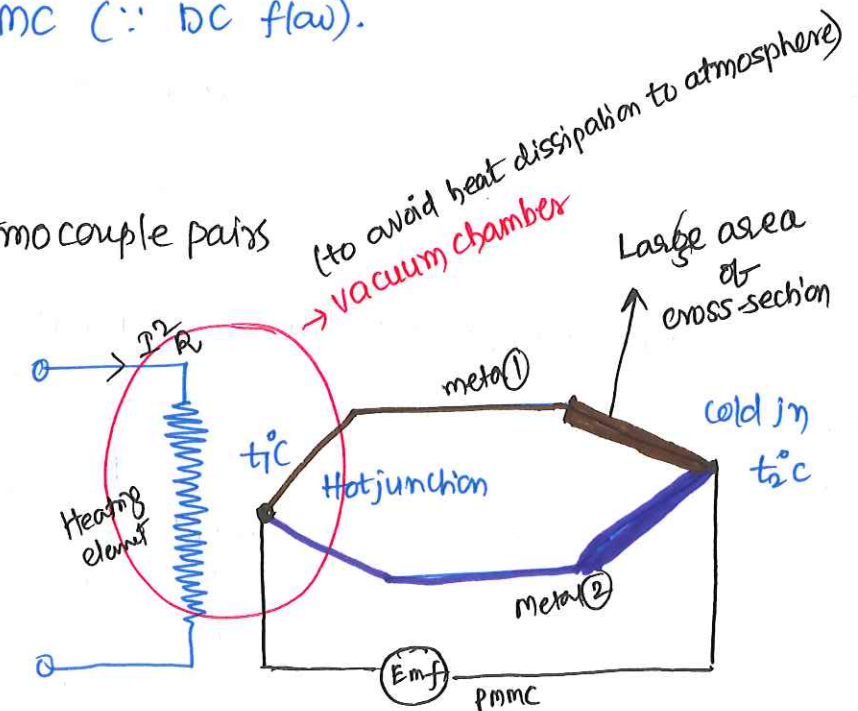 MC (∵ DC flow).
(to avoid heat dissipation to atmosphere)
→ vacuum chamber
mocouple pairs
Large area
of
cross-section
I²R
metal ①
cold jn
t₂°C
t₁°C
Hot junction
Heating
elemet
metal ②
Emf
PMMC